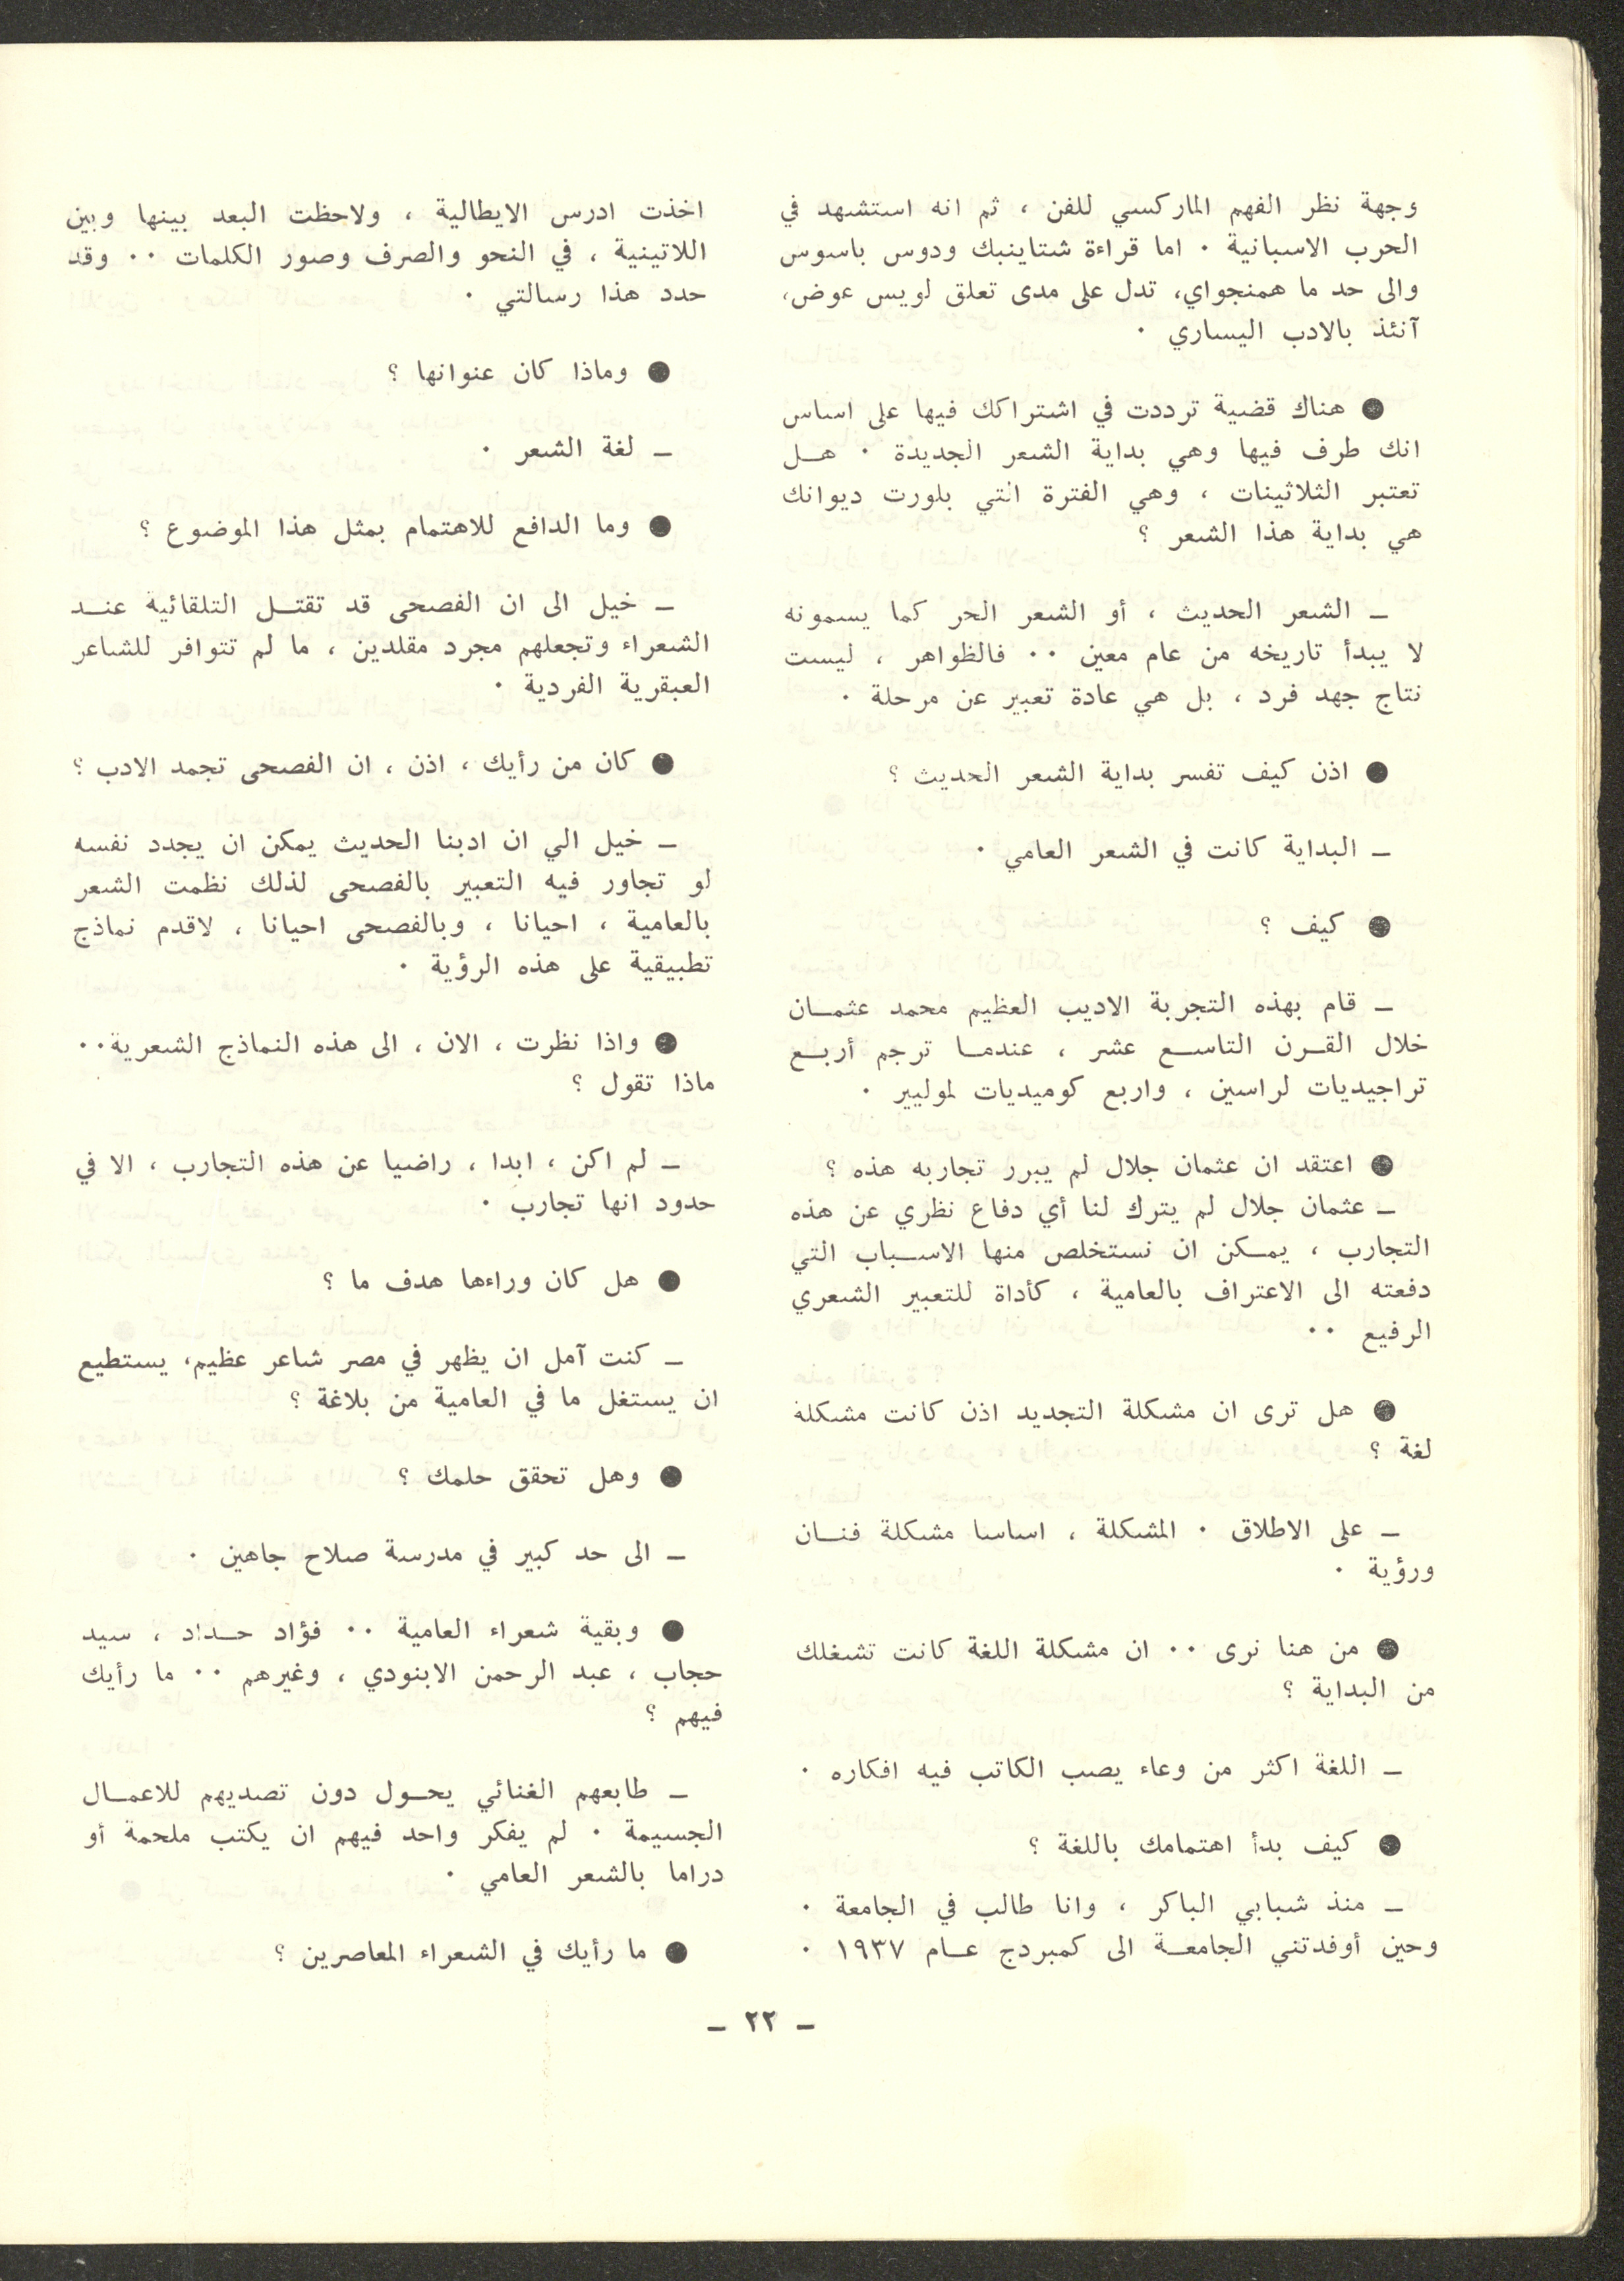 وجهة نظر الفهم الماركسي للفن ، ثم انه استشهد في
الحرب الاسبانية . اما قراءة شتاينبك ودوس باسوس
والى حد ما همنجواي، تدل على مدى تعلق لويس عوض،
آنئذ بالادب اليساري .
● هناك قضية ترددت في اشتراكك فيها على اساس
انك طرف فيها وهي بداية الشعر الجديدة . هـل
تعتبر الثلاثينات ، وهي الفترة التي بلورت ديوانك
هي بداية هذا الشعر ؟
ـ الشعر الحديث ، أو الشعر الحر كما يسمونه
لا يبدأ تاريخه من عام معين .. فالظواهر ، ليست
نتاج جهد فرد ، بل هي عادة تعبير عن مرحلة .
● اذن كيف تفسر بداية الشعر الحديث ؟
ـ البداية كانت في الشعر العامي .
● كيف ؟
ـ قام بهذه التجربة الاديب العظيم محمد عثمـان
خلال القـرن التاسـع عشر ، عندمـا ترجم أربـع
تراجيديات لراسين ، واربع كوميديات لموليير .
● اعتقد ان عثمان جلال لم يبرر تجاربه هذه ؟
ـ عثمان جلال لم يترك لنا أي دفاع نظري عن هذه
التجارب ، يمـكن ان نستخلص منها الاسـباب التي
دفعته الى الاعتراف بالعامية ، كأداة للتعبير الشعري
الرفيع ..
● هل ترى ان مشكلة التجديد اذن كانت مشكلة
لغة ؟
ـ على الاطلاق . المشكلة ، اساسا مشكلة فنـان
ورؤية .
● من هنا نرى .. ان مشكلة اللغة كانت تشغلك
من البداية ؟
ـ اللغة اكثر من وعاء يصب الكاتب فيه افكاره .
● كيف بدأ اهتمامك باللغة ؟
ـ منذ شبابي الباكر ، وانا طالب في الجامعة .
وحين أوفدتني الجامعـة الى كمبردج عـام ١٩٣٧ .
اخذت ادرس الايطالية ، ولاحظت البعد بينها وبين
اللاتينية ، في النحو والصرف وصور الكلمات .. وقد
حدد هذا رسالتي .
● وماذا كان عنوانها ؟
ـ لغة الشعر .
● وما الدافع للاهتمام بمثل هذا الموضوع ؟
ـ خيل الى ان الفصحى قد تقتـل التلقائية عنـد
الشعراء وتجعلهم مجرد مقلدين ، ما لم تتوافر للشاعر
العبقرية الفردية .
● كان من رأيك ، اذن ، ان الفصحى تجمد الادب ؟
ـ خيل الي ان ادبنا الحديث يمكن ان يجدد نفسه
لو تجاور فيه التعبير بالفصحى لذلك نظمت الشعر
بالعامية ، احيانا ، وبالفصحى احيانا ، لاقدم نماذج
تطبيقية على هذه الرؤية .
● واذا نظرت ، الان ، الى هذه النماذج الشعرية..
ماذا تقول ؟
ـ لم اكن ، ابدا ، راضيا عن هذه التجارب ، الا في
حدود انها تجارب .
● هل كان وراءها هدف ما ؟
ـ كنت آمل ان يظهر في مصر شاعر عظيم، يستطيع
ان يستغل ما في العامية من بلاغة ؟
● وهل تحقق حلمك ؟
ـ الى حد كبير في مدرسة صلاح جاهين .
● وبقية شعراء العامية .. فؤاد حـداد ، سيد
حجاب ، عبد الرحمن الابنودي ، وغيرهم .. ما رأيك
فيهم ؟
ـ طابعهم الغنائي يحـول دون تصديهم للاعمـال
الجسيمة . لم يفكر واحد فيهم ان يكتب ملحمة أو
دراما بالشعر العامي .
● ما رأيك في الشعراء المعاصرين ؟
ـ ٢٢ ـ